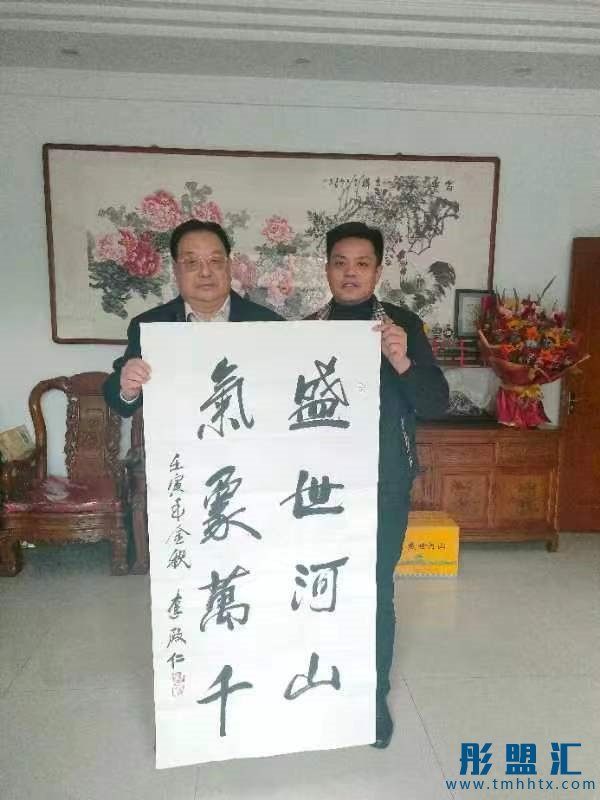 盛世河山
氣象萬千
壬寅年金秋 李殿仁
盛世河山
彤盟汇
www.tmhhtx.com